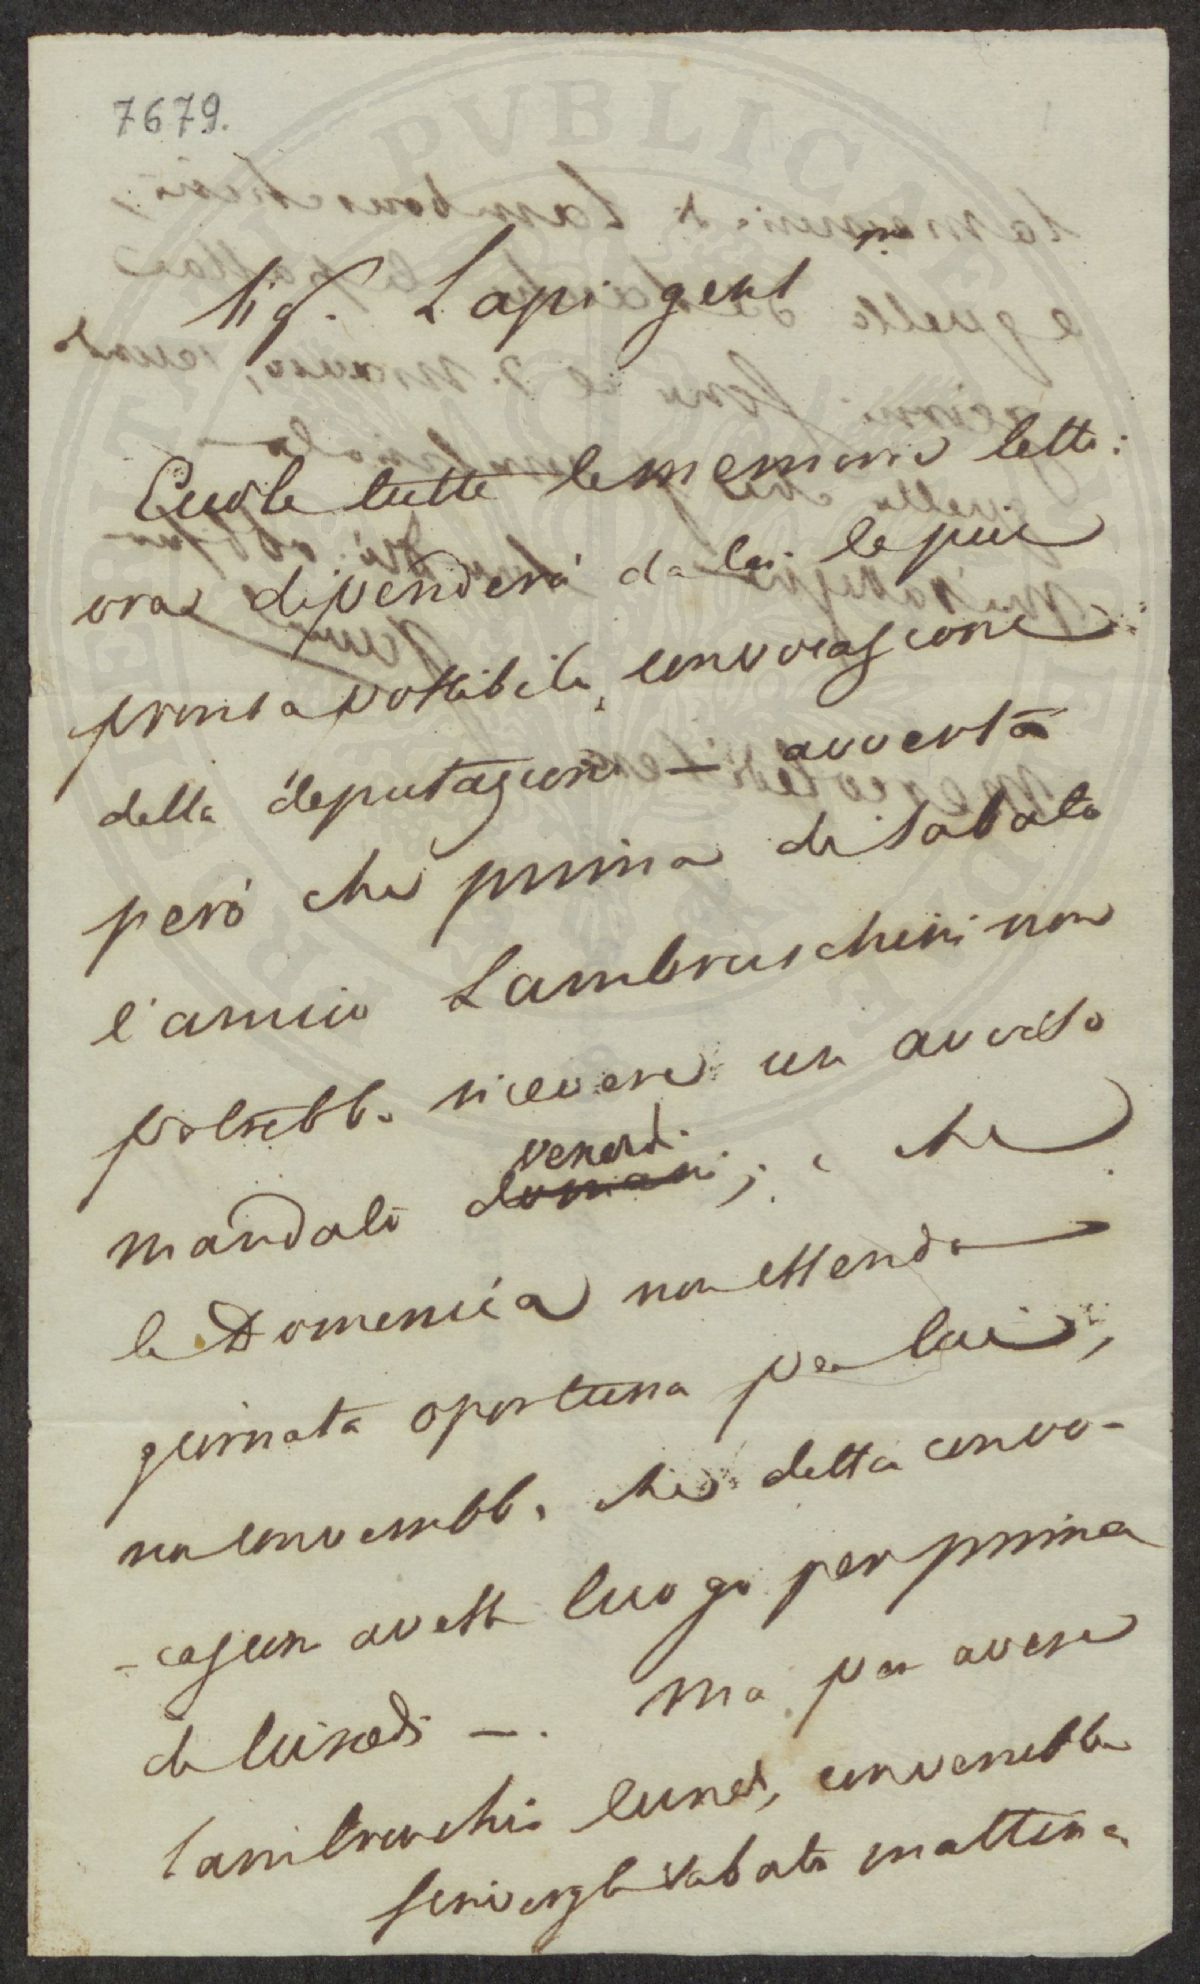 7679.
Sig.r Lapi gent.mo
Eccole tutte le memorie lette:
ora dipenderà da lei la più
pronta possibile convocazione
della deputazione — avverta
però che prima di sabato
l'amico Lambruschini non
potrebbe ricevere un avviso
mandato domani venerdì; e che
la Domenica non essendo
giornata oportuna per lui,
non converrebbe che detta convo-
-cazione avesse luogo per prima
di lunedì —. Ma per avere
Lambruschini lunedì, converrebbe
scrivergli sabato mattina